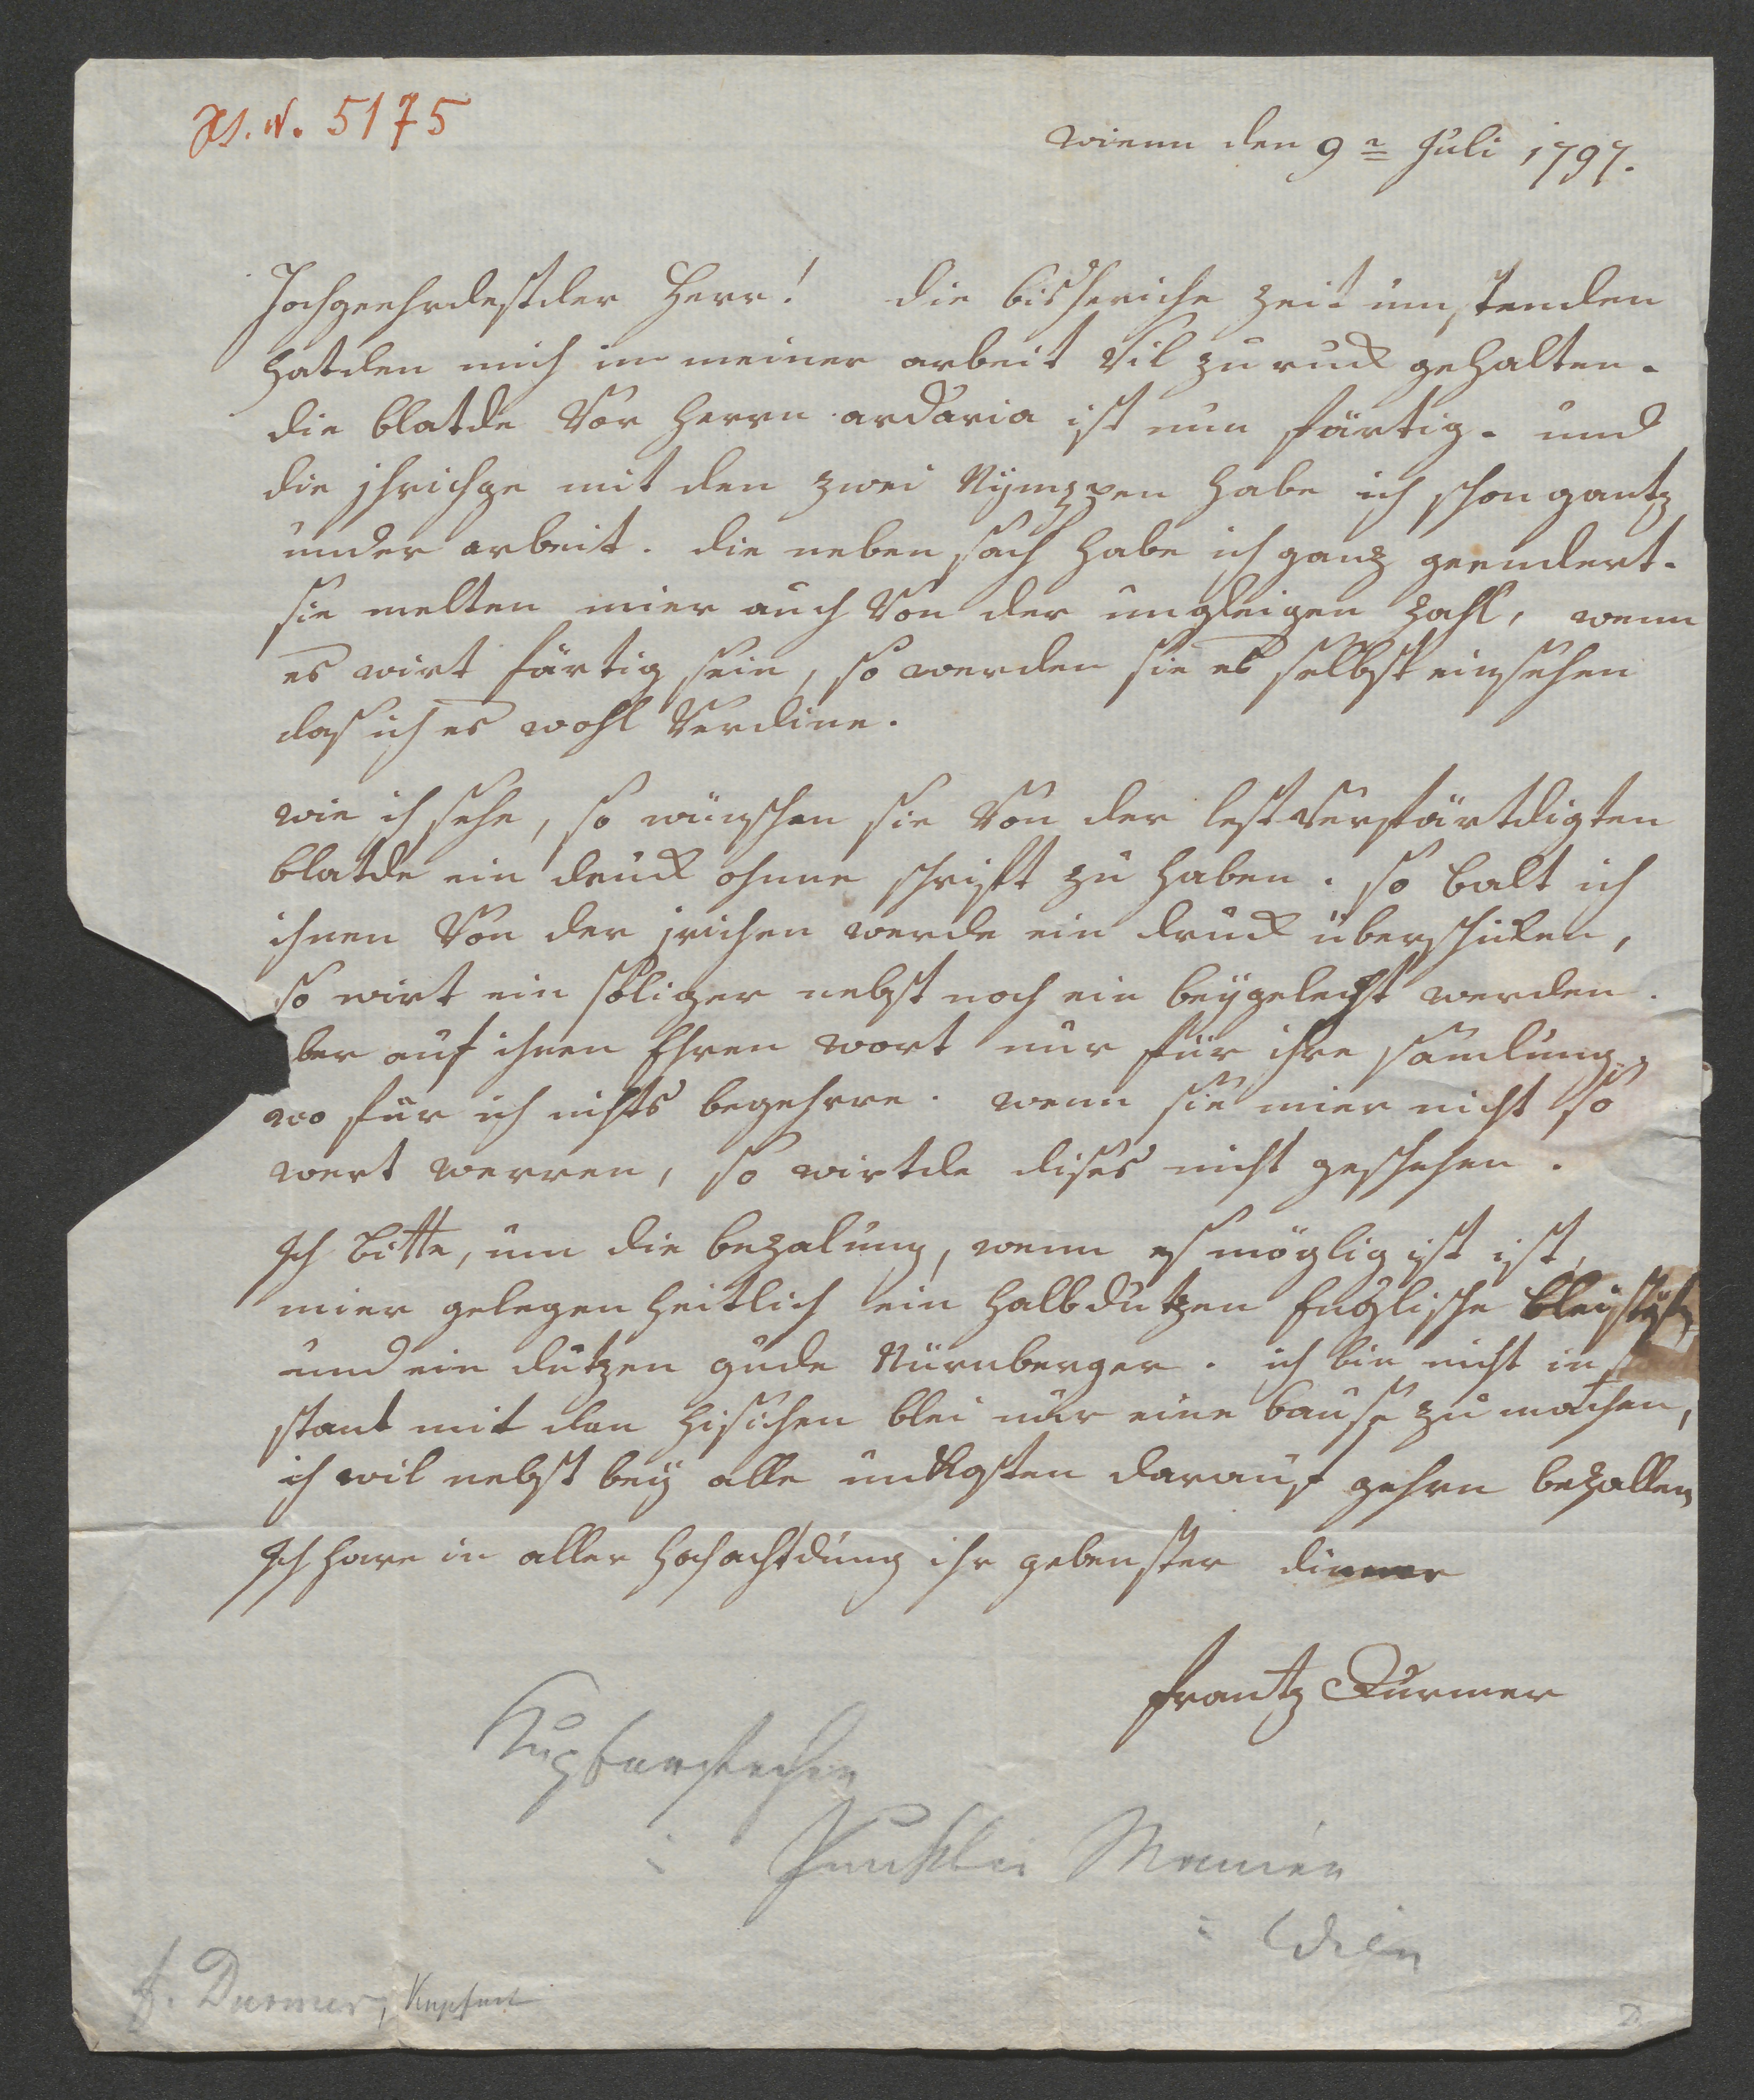 Hs. N. 5175
wienn den 9n Juli 1797.
Hochgeehrdestder Herr! die bisheriche zeit um standen
hatden mich in meiner arbeit vil zuruck gehalten.
die blatde vor herrn ardaria ist nun färtig. und
die jhrichge mit den zwei Nijmppen habe ich schon gantz
under arbeit. die neben sach habe ich ganz geendert.
sie melten mier auch von der ungleigen zahl, wenn
es wirt färtig sein, so werden sie es selbst einsehen
das ich es wohl verdine.
wie ich sehe, so winschen sie von der lest verfärtdigten
blatde ein druck ohnne schrift zu haben. so balt ich
ihnen von der irichen werde ein druck überschicken,
so wirt ein soliger nebst noch ein beygelecht werden.
ber auf ihren Ehren wort nur für ihre samlung,
wo für ich nichts begehrre. wenn sie mier nicht so
wert werren, so wirtde dises nicht geschehen.
Ich bitte, um die bezalung, wenn es möglig ist ist,
mier gelegen heitlich ein halb dutzen Englische bleystift
und ein dutzen gude Nürnberger. ich bin nicht in
stant mit den hisichen blei nur eine bause zu machen,
ich wil nebst bey alle unkosten darauf gehrn bezallen
Ich hare in aller hochachtdung ihr gebenster diener
Frantz Durmer
Kupferstecher
in Punktier Manier
in Wien
F. Durmer, Kupferst
D